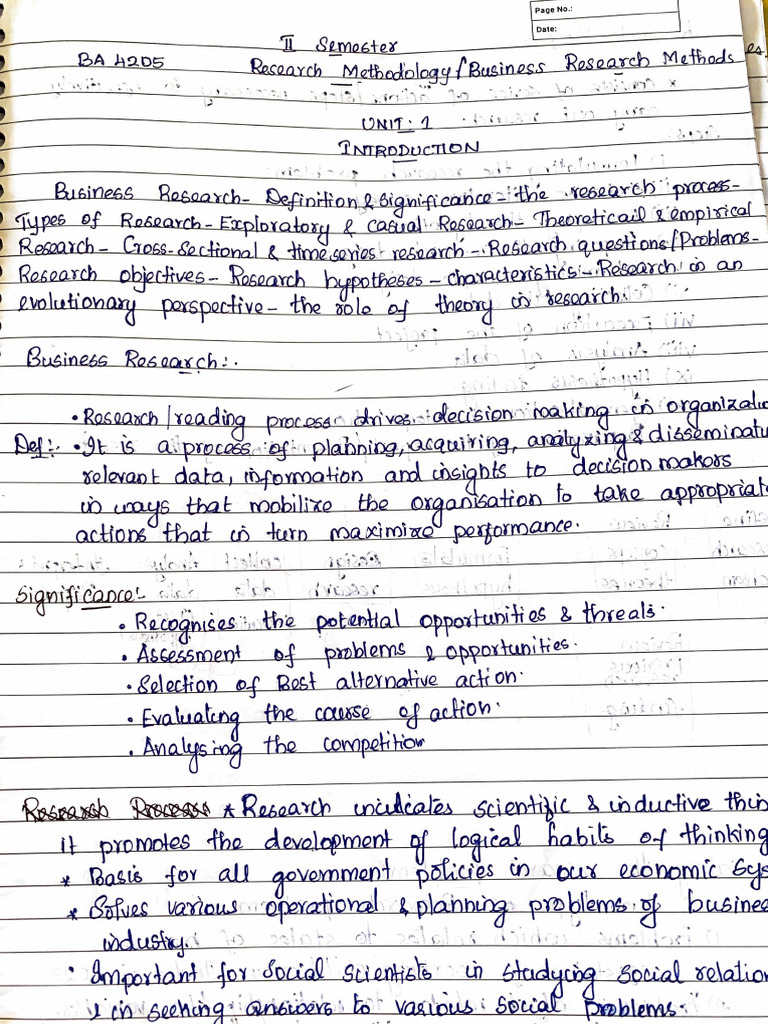 Page No.:
Date:
II Semester
BA 4205 Research Methodology/Business Research Methods
UNIT: 1
INTRODUCTION
Business Research- Definition & Significance- the research process-
Types of Research- Exploratory & casual Research- Theoreticail & empirical
Research- Cross-Sectional & time series research- Research questions/Problems-
Research objectives- Research hypotheses- characteristics:- Research in an
evolutionary perspective- the role of theory in research.
Business Research:-
• Research/reading process drives decision making in organizatio
Def:- • It is a process of planning, acquiring, analyzing & disseminatin
relevant data, information and insights to decision makers
in ways that mobilize the organisation to take appropriat
actions that in turn maximize performance.
Significance:-
• Recognises the potential opportunities & threals.
• Assessment of problems & opportunities.
• Selection of Best alternative action.
• Evaluating the course of action.
• Analysing the competition
Research Process * Research inculcates scientific & inductive thin
it promotes the development of logical habits of thinking
* Basis for all government policies in our economic sys
* Solves various operational & planning problems of busine
industry.
• Important for Social Scientists in studying social relation
& in seeking answers to various social problems.